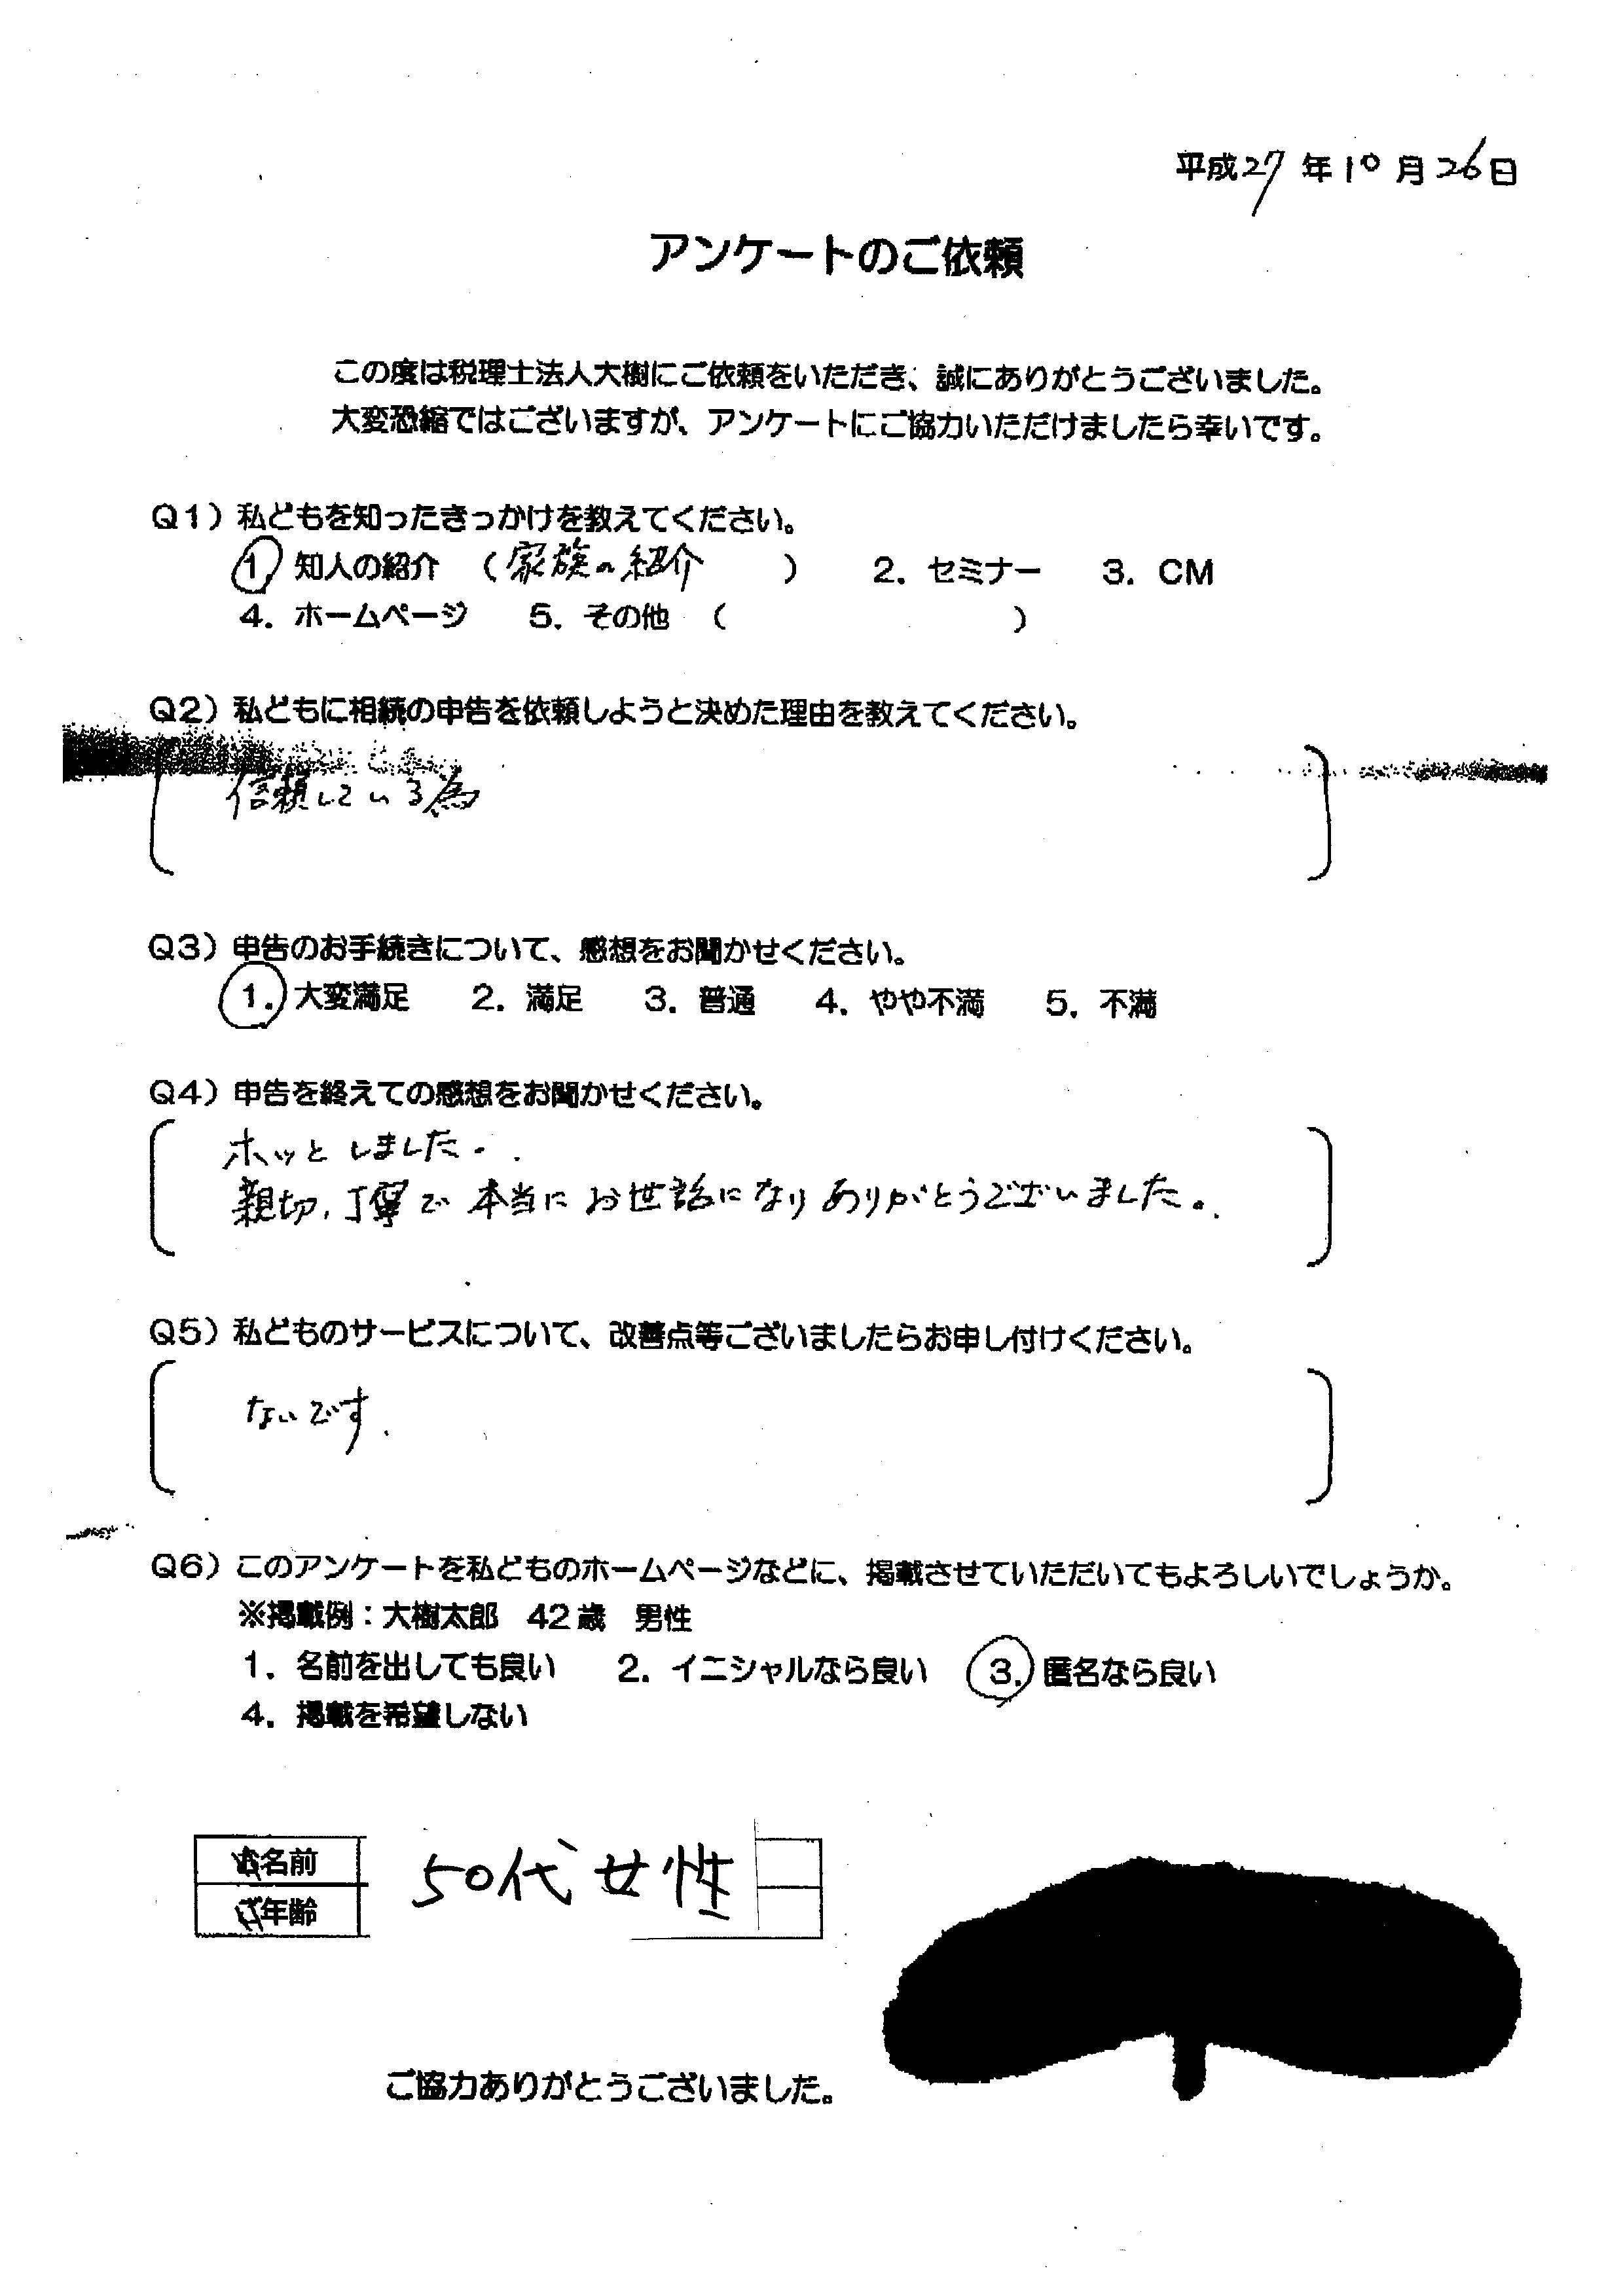 平成27年10月26日
アンケートのご依頼
この度は税理士法人大樹にご依頼をいただき、誠にありがとうございました。
大変恐縮ではございますが、アンケートにご協力いただけましたら幸いです。
Q1）私どもを知ったきっかけを教えてください。
1. 知人の紹介 （家族の紹介 ） 2. セミナー 3. CM
4. ホームページ 5. その他 （ ）
Q2）私どもに相続の申告を依頼しようと決めた理由を教えてください。
信頼している為
Q3）申告のお手続きについて、感想をお聞かせください。
1. 大変満足 2. 満足 3. 普通 4. やや不満 5. 不満
Q4）申告を終えての感想をお聞かせください。
ホッとしました。
親切、丁寧で本当にお世話になりありがとうございました。
Q5）私どものサービスについて、改善点等ございましたらお申し付けください。
ないです.
Q6）このアンケートを私どものホームページなどに、掲載させていただいてもよろしいでしょうか。
※掲載例：大樹太郎 42歳 男性
1. 名前を出しても良い 2. イニシャルなら良い 3. 匿名なら良い
4. 掲載を希望しない
お名前 50代女性
ご年齢
ご協力ありがとうございました。